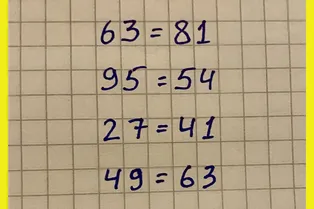 63 = 81
95 = 54
27 = 41
49 = 63